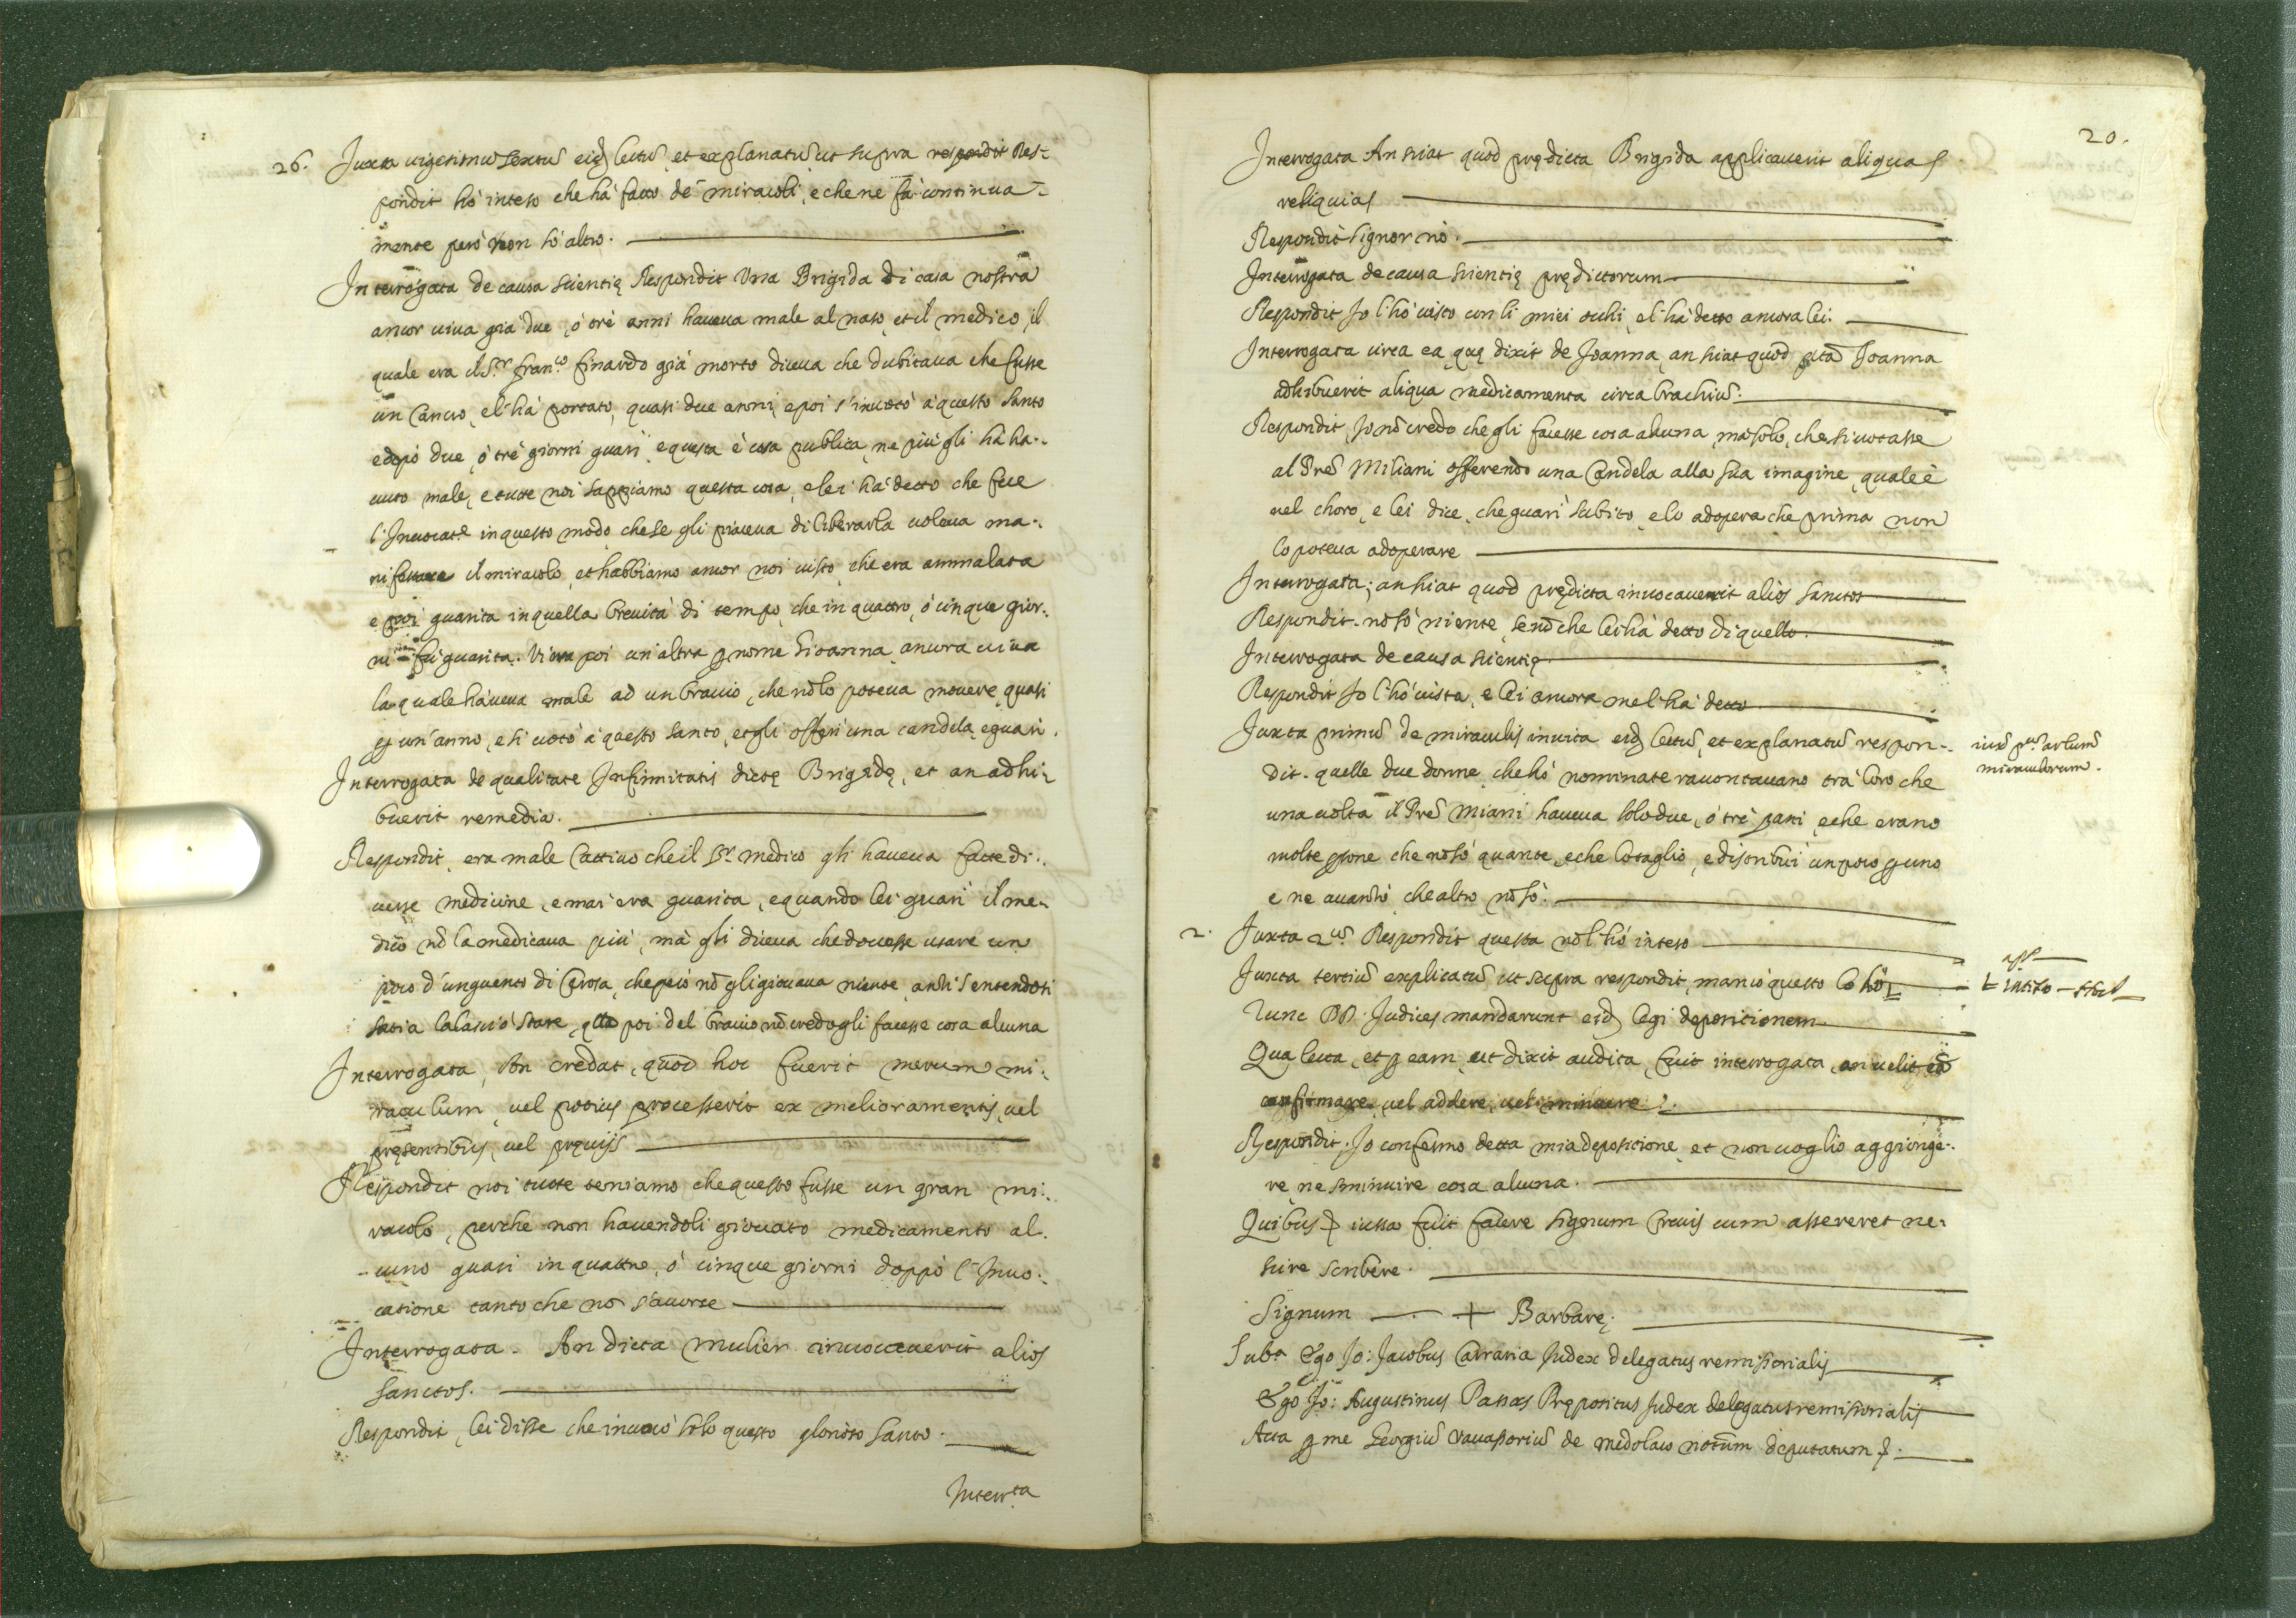 26. Juxta uigesimũ sextũ eidẽ lectũ, et explanatũ ut supra respondit Res-
pondit hò inteso che hà fatto de miracoli, e che ne fà continua-
mente però non sò altro.
Interrogata de causa scientię Respondit Una Brigida di casa nostra
ancor uiua già due, ó trè anni haueua male al naso, et il medico, il
quale era il S.r Fran.co Finardo già morto diceua che dubitaua che fusse
un Cancro, e l'hà portato, quasi due anni, e poi s'inuocò à questo Santo
e dopò due, ó trè giorni guarì, e questa è cosa publica, ne più gli hà ha-
uuto male, e tutte noi sappiamo questa cosa, e lei hà detto che fece
l'Inuocat.e in questo modo che se gli piaceua di liberarla uoleua ma-
nifestare il miracolo, et habbiamo ancor noi uisto, che era ammalata
e poi guarita in quella breuità di tempo, che in quattro, ó cinque gior-
ni fù guarita. Vi era poi un'altra ꝑ nome Gioanna, ancora uiua
la quale haueua male ad un braccio, che nõ lo poteua mouere, quasi
ꝑ un'anno, e si uotò à questo Santo, et gli offerì una candela, e guarì.
Interrogata de qualitate Infirmitatis dictę Brigidę, et an adhi-
buerit remedia.
Respondit, era male Cattiuo che il S.r medico gli haueua fatte di-
uerse medicine, e mai era guarita, e quando lei guarì il me-
dico nõ la medicaua più, mà gli diceua che douesse usare un
poco d'unguento di Cerosa, che però nõ gli giouaua niente, anzi sentendosi
satia la lasciò stare, q̃lla poi del braccio nõ credo gli facesse cosa alcuna
Interrogata, An credat, quod hoc fuerit merum mi-
raculum, uel potius processerit ex melioramentis, uel
pręsentibus, uel pręuijs
Respondit noi tutte teniamo che questo fusse un gran mi-
racolo, perche non hauendoli giouato medicamento al-
cuno guarì in quattro, ó cinque giorni doppò l'Inuo-
catione tanto che nõ s'accorse
Interrogata. An dicta mulier inuocauerit alios
Sanctos.
Respondit, lei disse che inuocò solo questo glorioso Santo.
Interr.ta
20.
Interrogata An sciat quod prędicta Brigida applicauerit aliquas
reliquias
Respondit Signor nò.
Interrogata de causa scientię prędictorum
Respondit Io l'hò uisto con li miei occhi, e l'hà detto ancora lei.
Interrogata circa ea, quę dixit de Joanna, an sciat quod p̃ta Joanna
adhibuerit aliqua medicamenta circa brachiũ.
Respondit, Io nõ credo che gli facesse cosa alcuna, mà solo, che si uotasse
al Prẽ Miliani offerendo una Candela alla sua imagine, quale è
nel choro, e lei dice, che guarì subito, e lo adopera che prima non
lo poteua adoperare
Interrogata; an sciat quod prędicta inuocauerit alios Sanctos
Respondit. nõ sò niente, se nõ che lei hà detto di quello.
Interrogata de causa scientię.
Respondit Io l'hò uista, e lei ancora me l'hà detto
Juxta primũ de miraculis inuita eidẽ lectũ, et explanatũ respon-
dit. quelle due donne, che hò nominate raccontauano trà loro che
una uolta il Prẽ Miani haueua solo due, ó trè pani, e che erano
molte ꝑsone che nõ sò quante, e che lo tagliò, e distribuì un poco ꝑ uno
e ne auanzò che altro nõ sò.
iuxta p.um articulũ
miraculorum.
2. Juxta 2.um Respondit questa nõ l'hò inteso
Juxta tertiũ explicatũ ut supra respondit, manco questo lo hò
inteso
Tunc DD. Judices mandarunt eidẽ legi depositionem
Qua lecta, et ꝑ eam, ut dixit audita, fuit interrogata, an uelit eã
confirmare, uel addere, uel minuere.
Respondit. Io confermo detta mia deposicione, et non uoglio aggionge-
re, ne sminuire cosa alcuna.
Quibus iussa fuit facere signum Crucis cum assereret ne-
scire scribere.
Signum + Barbarę.
Sub.a Ego Jo: Jacobus Carraria Judex delegatus remissorialis
Ego Jo: Augustinus Passus Prępositus Judex delegatus remissorialis
Acta ꝑ me Georgiũ Vauassoriũ de Medolaco notum deputatum